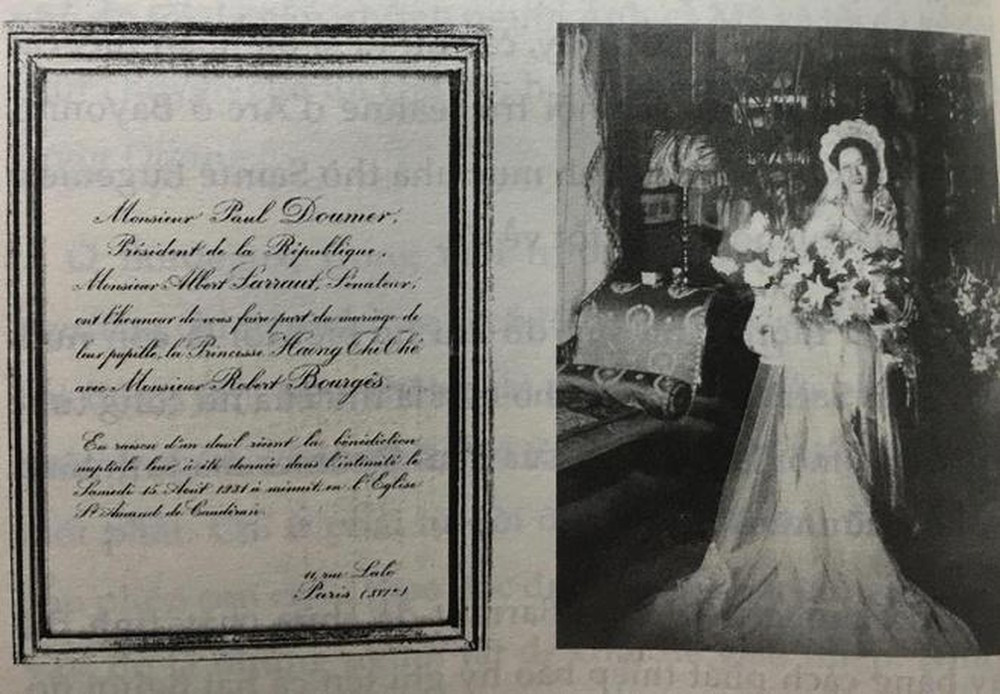 Monsieur Paul Doumer,
Président de la République,
Monsieur Albert Sarraut, Sénateur,
ont l'honneur de vous faire part du mariage de
leur pupille, la Princesse
avec Monsieur Robert Bourgès.
En raison d'un deuil récent la bénédiction
nuptiale leur a été donnée dans l'intimité le
Samedi 15 Août 1931 à minuit, en l'Eglise
St Amand de Caudéran.
11, rue Lalo
Paris (XVIe)